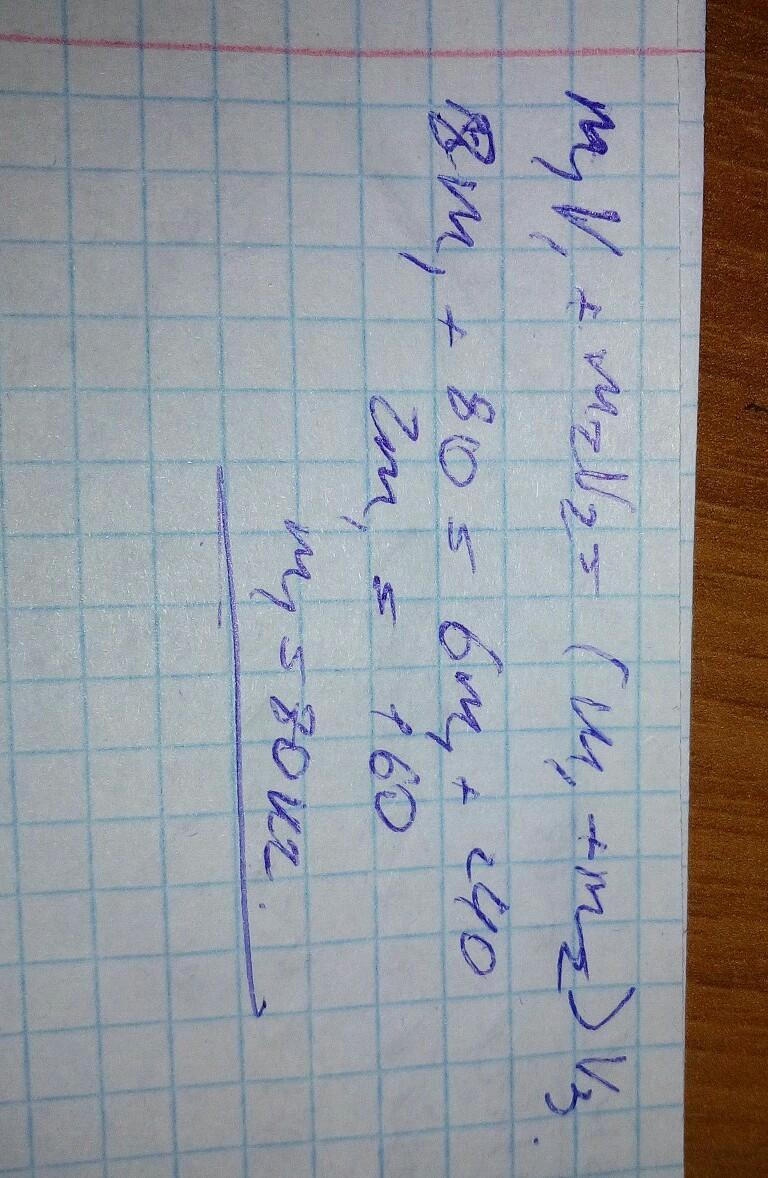 m₁V₁ + m₂V₂ = (m₁ + m₂) V₃.
8m₁ + 80 = 6m₁ + 240
2m₁ = 160
m₁ = 80 кг.